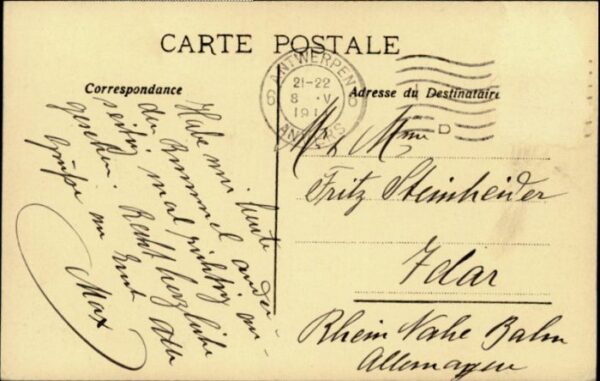 CARTE POSTALE
Correspondance
Adresse du Destinataire
ANTWERPEN
6 21-22 6
8 V
191
ANVERS
D
Habe mir heute
den Rummel ander-
seitig mal richtig an-
gesehen. Recht herzliche
Grüße an Ernst
Max
Mr. Mme
Fritz Steinheider
Idar
Rhein Nahe Bahn
Allemagne